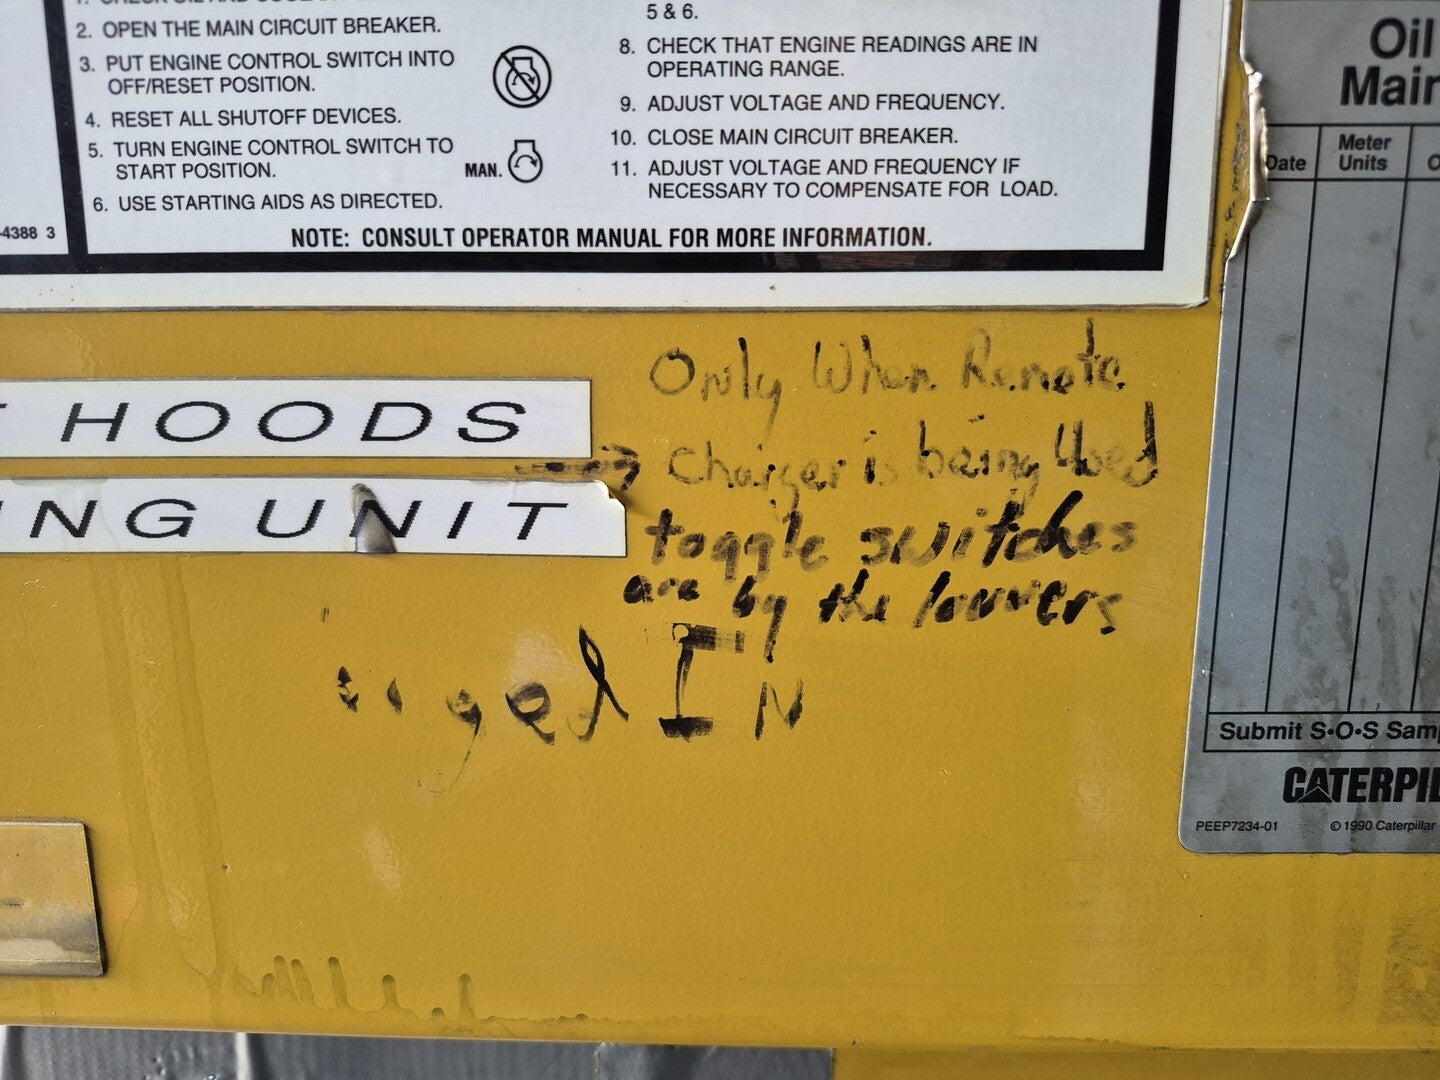 2. OPEN THE MAIN CIRCUIT BREAKER.
3. PUT ENGINE CONTROL SWITCH INTO
OFF/RESET POSITION.
4. RESET ALL SHUTOFF DEVICES.
5. TURN ENGINE CONTROL SWITCH TO
START POSITION.
MAN.
6. USE STARTING AIDS AS DIRECTED.
5 & 6.
8. CHECK THAT ENGINE READINGS ARE IN
OPERATING RANGE.
9. ADJUST VOLTAGE AND FREQUENCY.
10. CLOSE MAIN CIRCUIT BREAKER.
11. ADJUST VOLTAGE AND FREQUENCY IF
NECESSARY TO COMPENSATE FOR LOAD.
NOTE: CONSULT OPERATOR MANUAL FOR MORE INFORMATION.
-4388 3
HOODS
ING UNIT
Only When Remote
→ Charger is being Used
toggle switches
are by the louvers
IN
Oil
Main
Date
Meter
Units
Submit S•O•S Samp
CATERPIL
PEEP7234-01
© 1990 Caterpillar